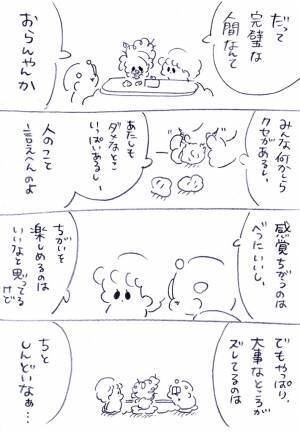 だって
完璧な
人間なんて
おらんやんか
みんな何かしら
クセがあるし、
あたしも
ダメなとこ
いっぱいあるし、
人のこと
言えへんのよ
感覚ちがうのは
べつにいいし、
ちがいを
楽しめるのは
いいなと思ってる
けど
でもやっぱり、
大事なところが
ズレてるのは
ちっと
しんどいなぁ…